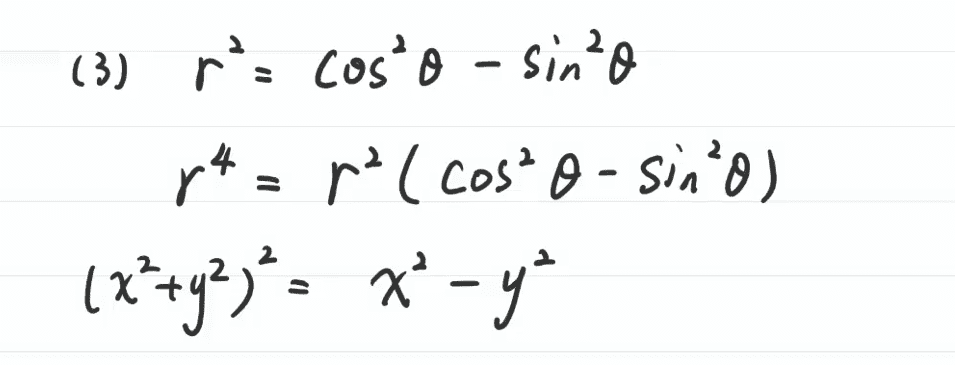 (3) r² = cos²θ - sin²θ
r⁴ = r² ( cos²θ - sin²θ )
(x²+y²)² = x² - y²